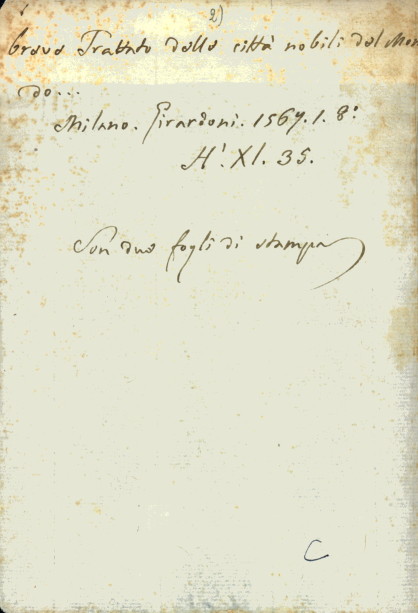 2)
breve Trattato delle città nobili del Mon
do...
Milano. Girardoni. 1567. 1. 8.º
H.' XI. 35.
Son due fogli di stampa
C